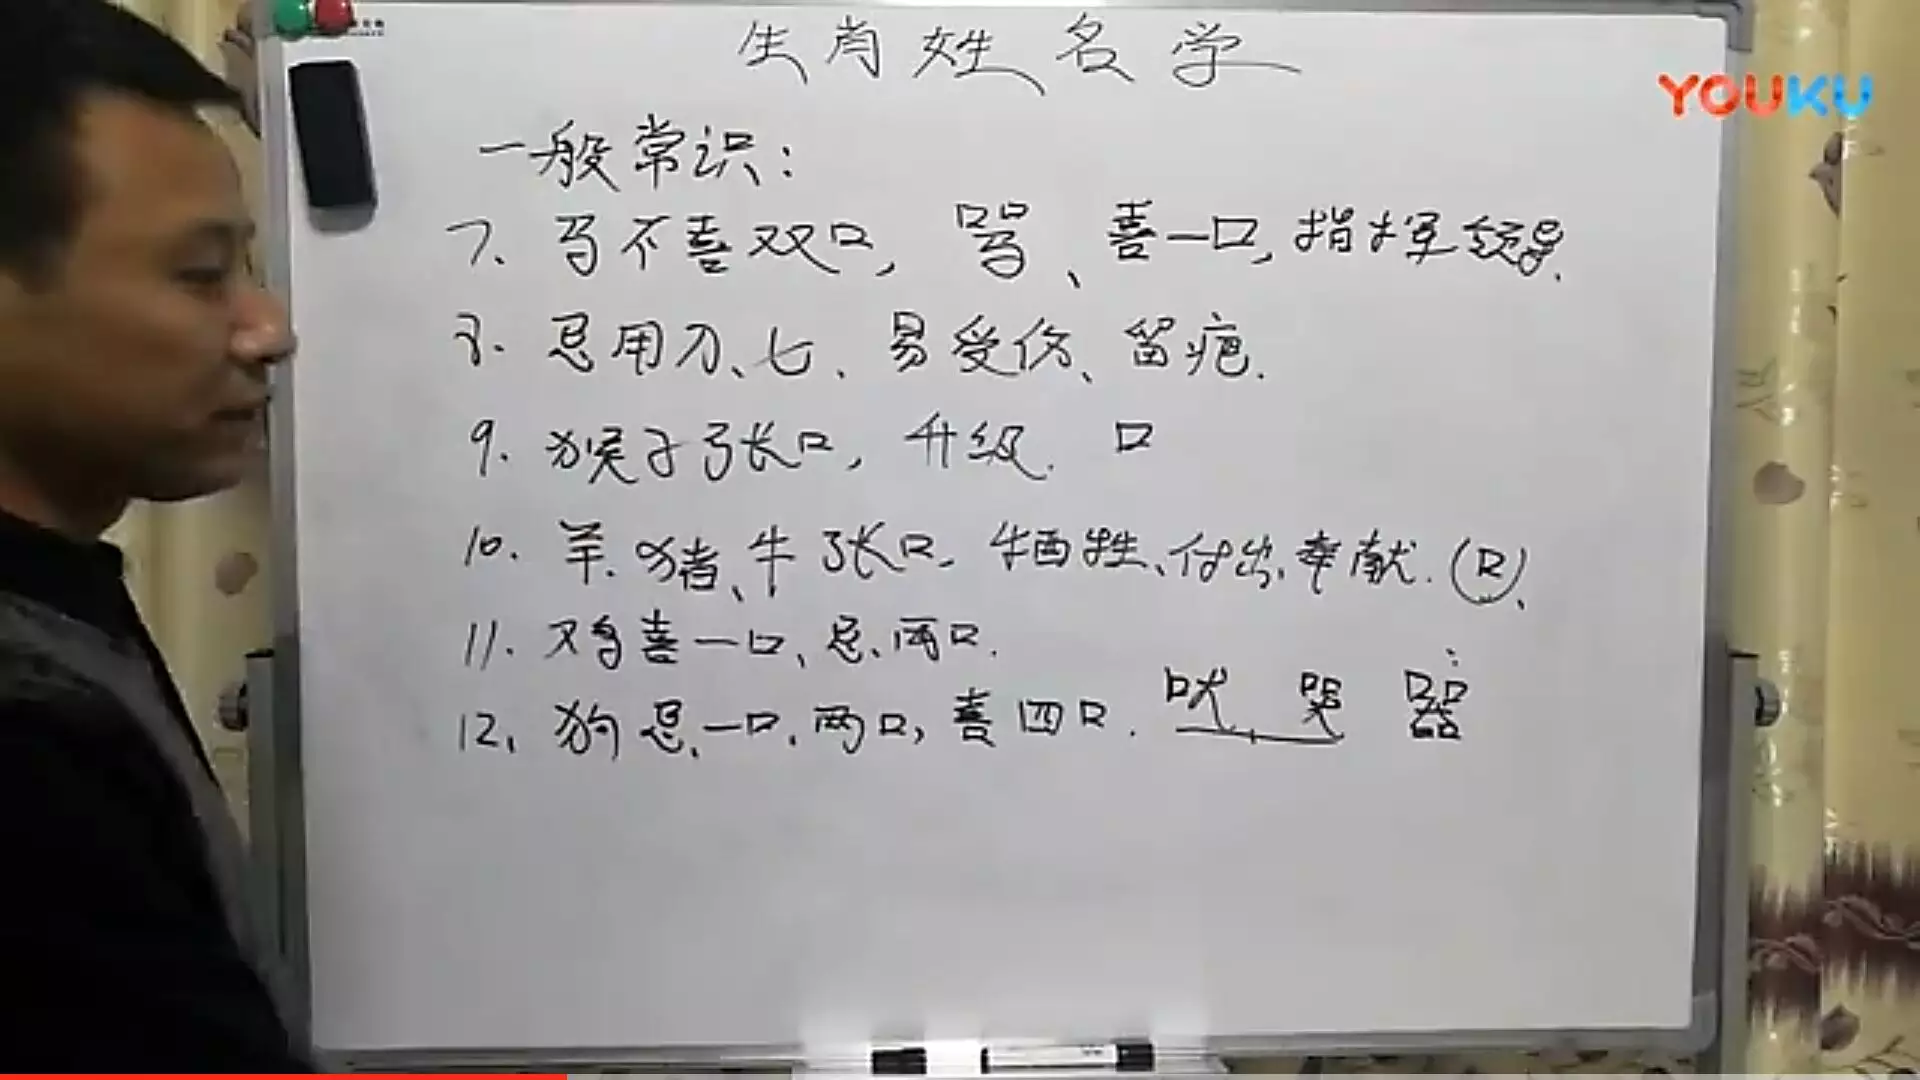 生肖姓名学
YOUKU
一般常识:
7、马不喜双口, 骂、喜一口,指挥领导.
8. 忌用刀、七、易受伤、留疤.
9. 猴子张口, 升级. 口
10. 羊.猪、牛张口, 牺牲、付出,奉献.(口)、
11. 鸡喜一口、忌、两口.
12、狗忌、一口、两口,喜四口. 吠 哭 器